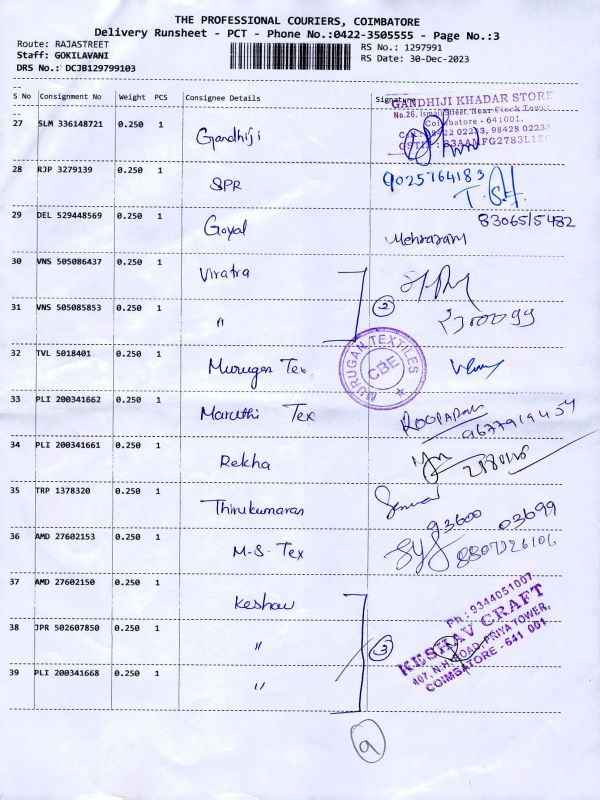 THE PROFESSIONAL COURIERS, COIMBATORE
Delivery Runsheet - PCT - Phone No.:0422-3505555 - Page No.:3
Route: RAJASTREET
Staff: GOKILAVANI
DRS No.: DCJB129799103
RS No.: 1297991
RS Date: 30-Dec-2023
S No Consignment No Weight PCS Consignee Details Signature
GANDHIJI KHADAR STORE
No.26, Ismail Street, Near Clock Tower
Coimbatore - 641001.
27 SLM 336148721 0.250 1 Gandhiji
28 RJP 3279139 0.250 1 SPR 9025764183
29 DEL 529448569 0.250 1 Goyal 8306515482
30 VNS 505086437 0.250 1 Viratra
31 VNS 505085853 0.250 1 " 2
32 TVL 5018401 0.250 1 Murugan Tex
MURUGAN TEXTILES
CBE
33 PLI 200341662 0.250 1 Maruthi Tex ROOPARAM
9677919454
34 PLI 200341661 0.250 1 Rekha
35 TRP 1378320 0.250 1 Thirukumaran
93600 03699
36 AMD 27602153 0.250 1 M-S- Tex 8807226106
37 AMD 27602150 0.250 1 Keshav
Ph : 9344051007
KESHAV CRAFT
407, N.H. ROAD, PRIYA TOWER,
COIMBATORE - 641 001
38 JPR 502607850 0.250 1 " 3
39 PLI 200341668 0.250 1 "
9